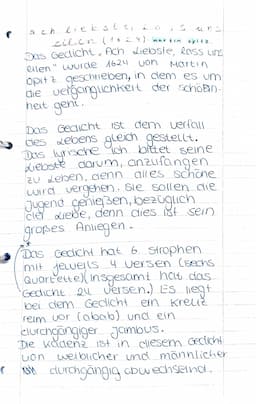 ach liebste, lass uns
eilen (1624) martin opitz
Das Gedicht „Ach Liebste, lass uns
eilen" wurde 1624 von Martin
Opitz geschrieben, in dem es um
die vergänglichkeit der schöhn-
heit geht.
Das Gedicht ist dem verfall
des Lebens gleich gestellt.
Das lyrische Ich bittet seine
Liebste darum, anzufangen
zu leben, denn alles schöne
wird vergehen. Sie sollen die
Jugend genießen, bezüglich
der Liebe, denn dies ist sein
großes Anliegen.
Das Gedicht hat 6 strophen
mit jeweils 4 versen (sechs
Quartette) (insgesamt hat das
Gedicht 24 versen.) Es liegt
bei dem Gedicht ein kreuz
reim vor (abab) und ein
durchgängiger jambus.
Die kadenz ist in diesem Gedicht
von weiblicher und männlicher
durchgängig abwechselnd.